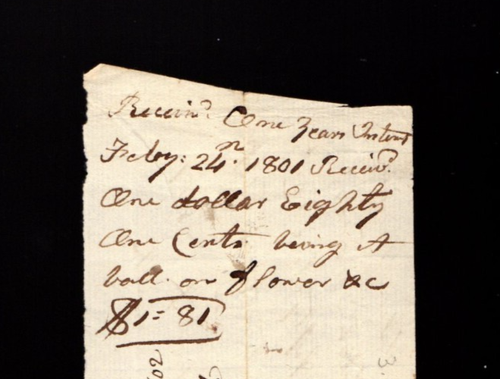 Receiv.d One Years Interst
Feby: 24th. 1801 Receiv.d
One dollar Eighty
One Cents being A
ball. on flower &c
$1=81